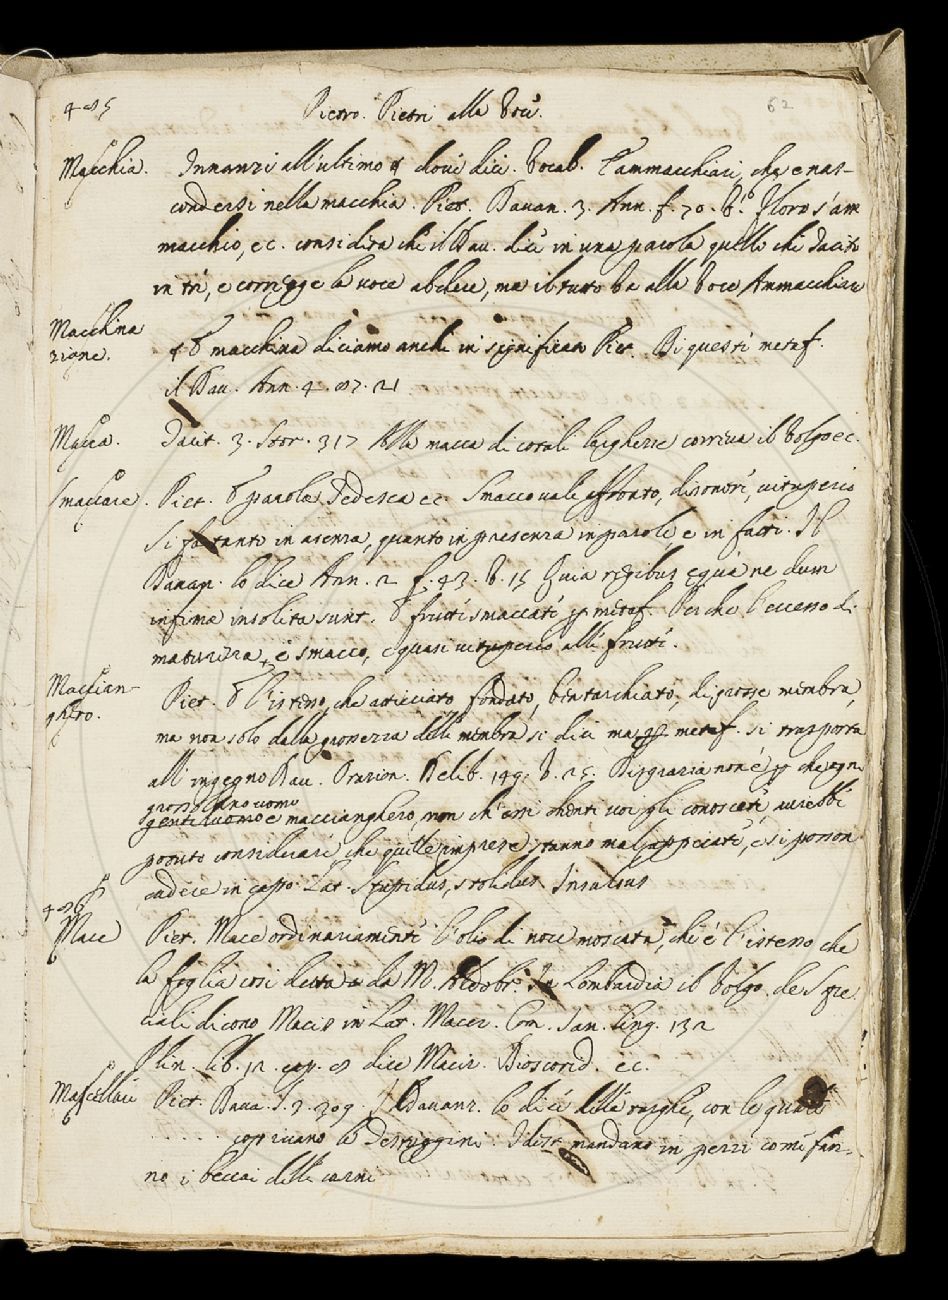 485 Pietro Pietri alla Voce 62
Macchia. Innanzi all'ultimo § dove dice. Vocab. E ammacchiarsi, che è nas-
condersi nella macchia. Piet. Davan. 3. Ann. f. 70. V.° Floro s'am
macchio, ec. considera che il Dav. dice in una parola quello che Tacito
in tre, e corregge la voce abdere, ma il tutto va alla Voce Ammacchiare
Macchina
zione. § V macchina diciamo anche in significato Piet. Di questi metaf.
il Dav. Ann. 4. 87. 21
Macca. Tacit. 3. Stor. 317 Alla macca di cotali larghezze correva il Volgo ec.
Smaccare. Piet. V parola Tedesca ec Smacco vale affronto, disonore, vituperio
Si fa tanto in assenza, quanto in presenza in parole, e in fatti. Il
Davan. lo dice Ann. 2 f. 43. V. 15 Quia regibus ne dum
infima insolita sunt. V frutti smaccati p metaf. Perche l'eccesso di
maturezza, è smacco, e quasi vituperio alle frutti.
Maccian-
ghero. Piet. V l'istesso, che atticciato, fondato, bentarchiato, di grosse membra,
ma non solo dalla grossezza delle membra si dice ma p metaf. si trasporta
all'ingegno Dav. Orazion. Delib. 149. V. 25. Disgrazia non è p che ogni
grossolano uomo
gentiluomo e maccianghero, non ch'essi voi gli conoscete, avrebbe
potuto considerare che quelle imprese stanno mal appiccate, e si posson
cadere in capo. Lat. Stupidus, stolidus. Insulsus
486
Mace Piet. Mace ordinariamente l'olio di noce moscata, che è l'istesso che
la foglia così detta da M. Aldobr. In Lombardia il Volgo de Spe
ziali dicono Macis in Lat. Macer. Com. Ling. 132
Plin. lib. 12. cap. 8 dice Macir. Dioscorid. ec.
Macellaio Piet. Dava. 309. Il Davanz. lo dice delle roghe, con le quali
coprivano le mandano in pezzi come fan-
no i beccai delle carni